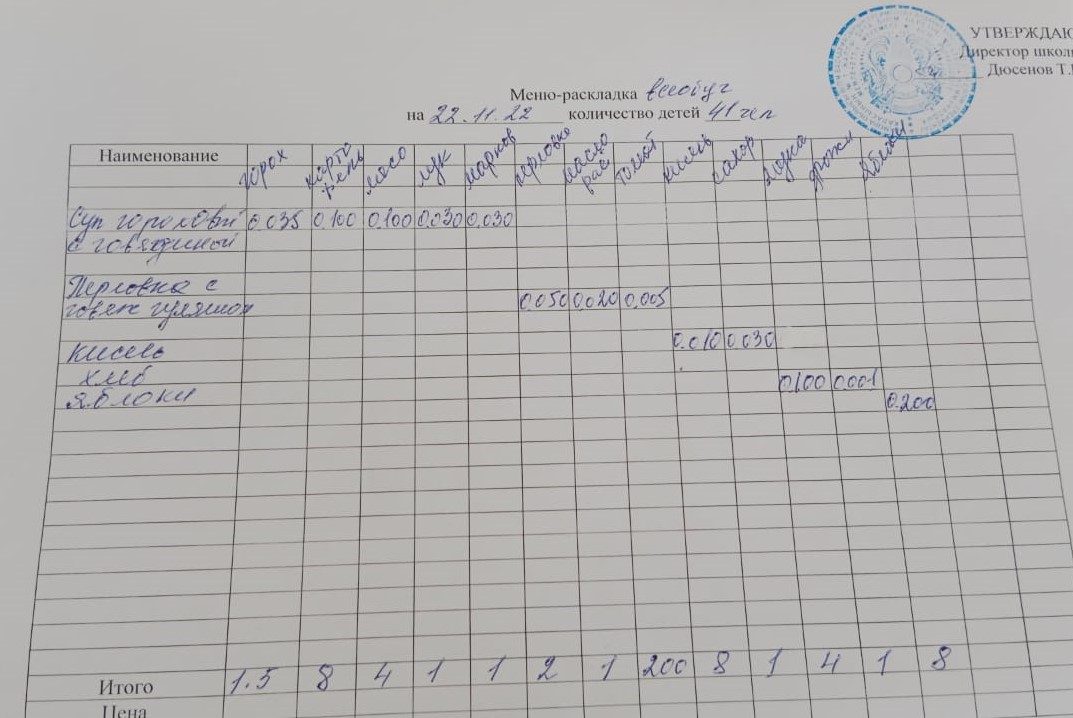 УТВЕРЖДАЮ
Директор школы
Дюсенов Т.
Меню-раскладка
на 22.11.22 количество детей 41 чел
Наименование горох карто фель мясо лук морков перловка масло рас томат кисель сахар мука дрожжи яблоки
Суп гороховый 0.035 0.100 0.100 0.030 0.030
с говядиной
Перловка с
говяж гуляшом 0.050 0.020 0.005
Кисель 0.010 0.030
хлеб 0.100 0.001
яблоки 0.200
Итого 1.5 8 4 1 1 2 1 200 8 1 4 1 8
Цена